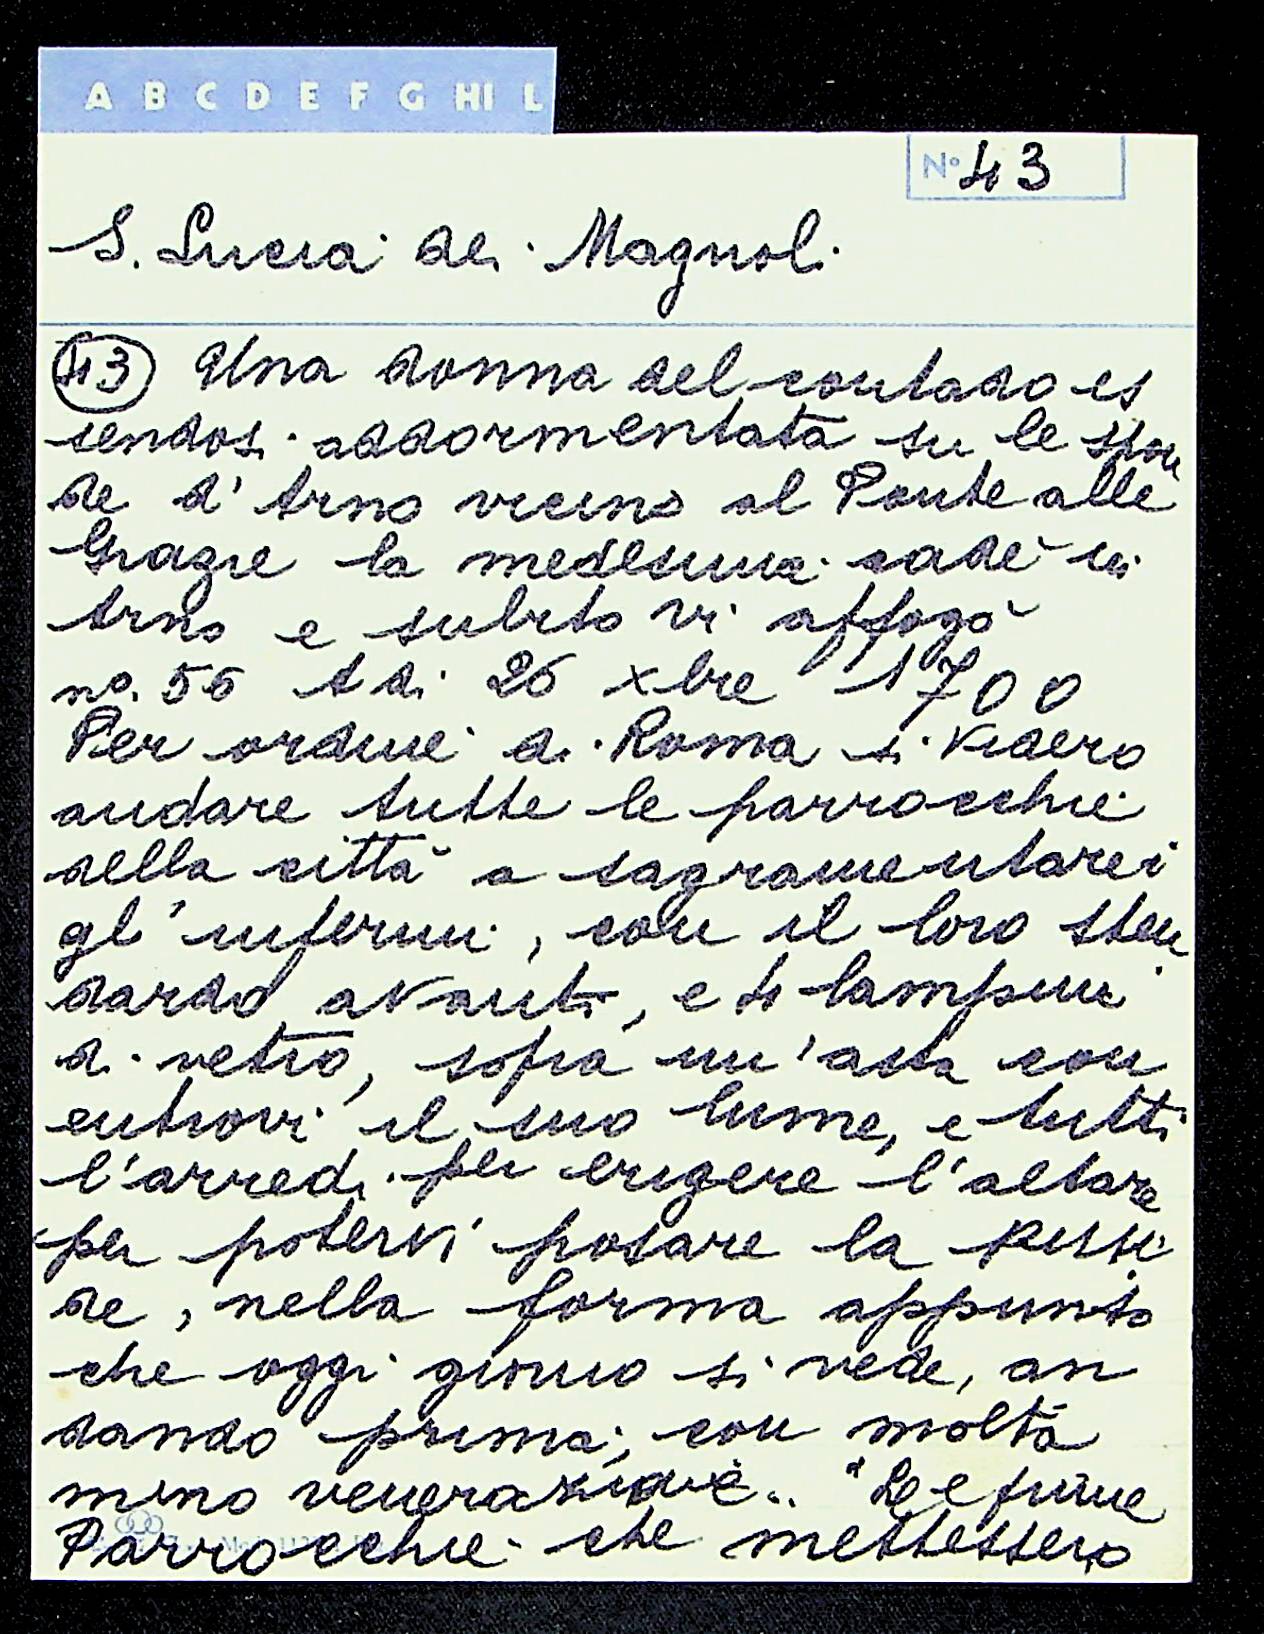 A B C D E F G HI L
N° 43
S. Lucia de' Magnoli
43 Una donna del contado es
sendosi addormentata su le spon
de d'Arno vicino al Ponte alle
Grazie la medesima cadè in
Arno e subito vi affogò
no. 56 Adi 26 xbre 1700
Per ordine di Roma si videro
andare tutte le parrocchie
della città a sagramentare i
gl'infermi, con il loro sten
dardo avanti, e 4 lampini
di vetro, sopra un'asta con
entrovi il suo lume, e tutti
l'arredi per erigere l'altare
per potervi posare la pissi
de, nella forma appunto
che oggi giorno si vede, an
dando prima, con molta
meno venerazione. "Le prime
Parrocchie che mettessero